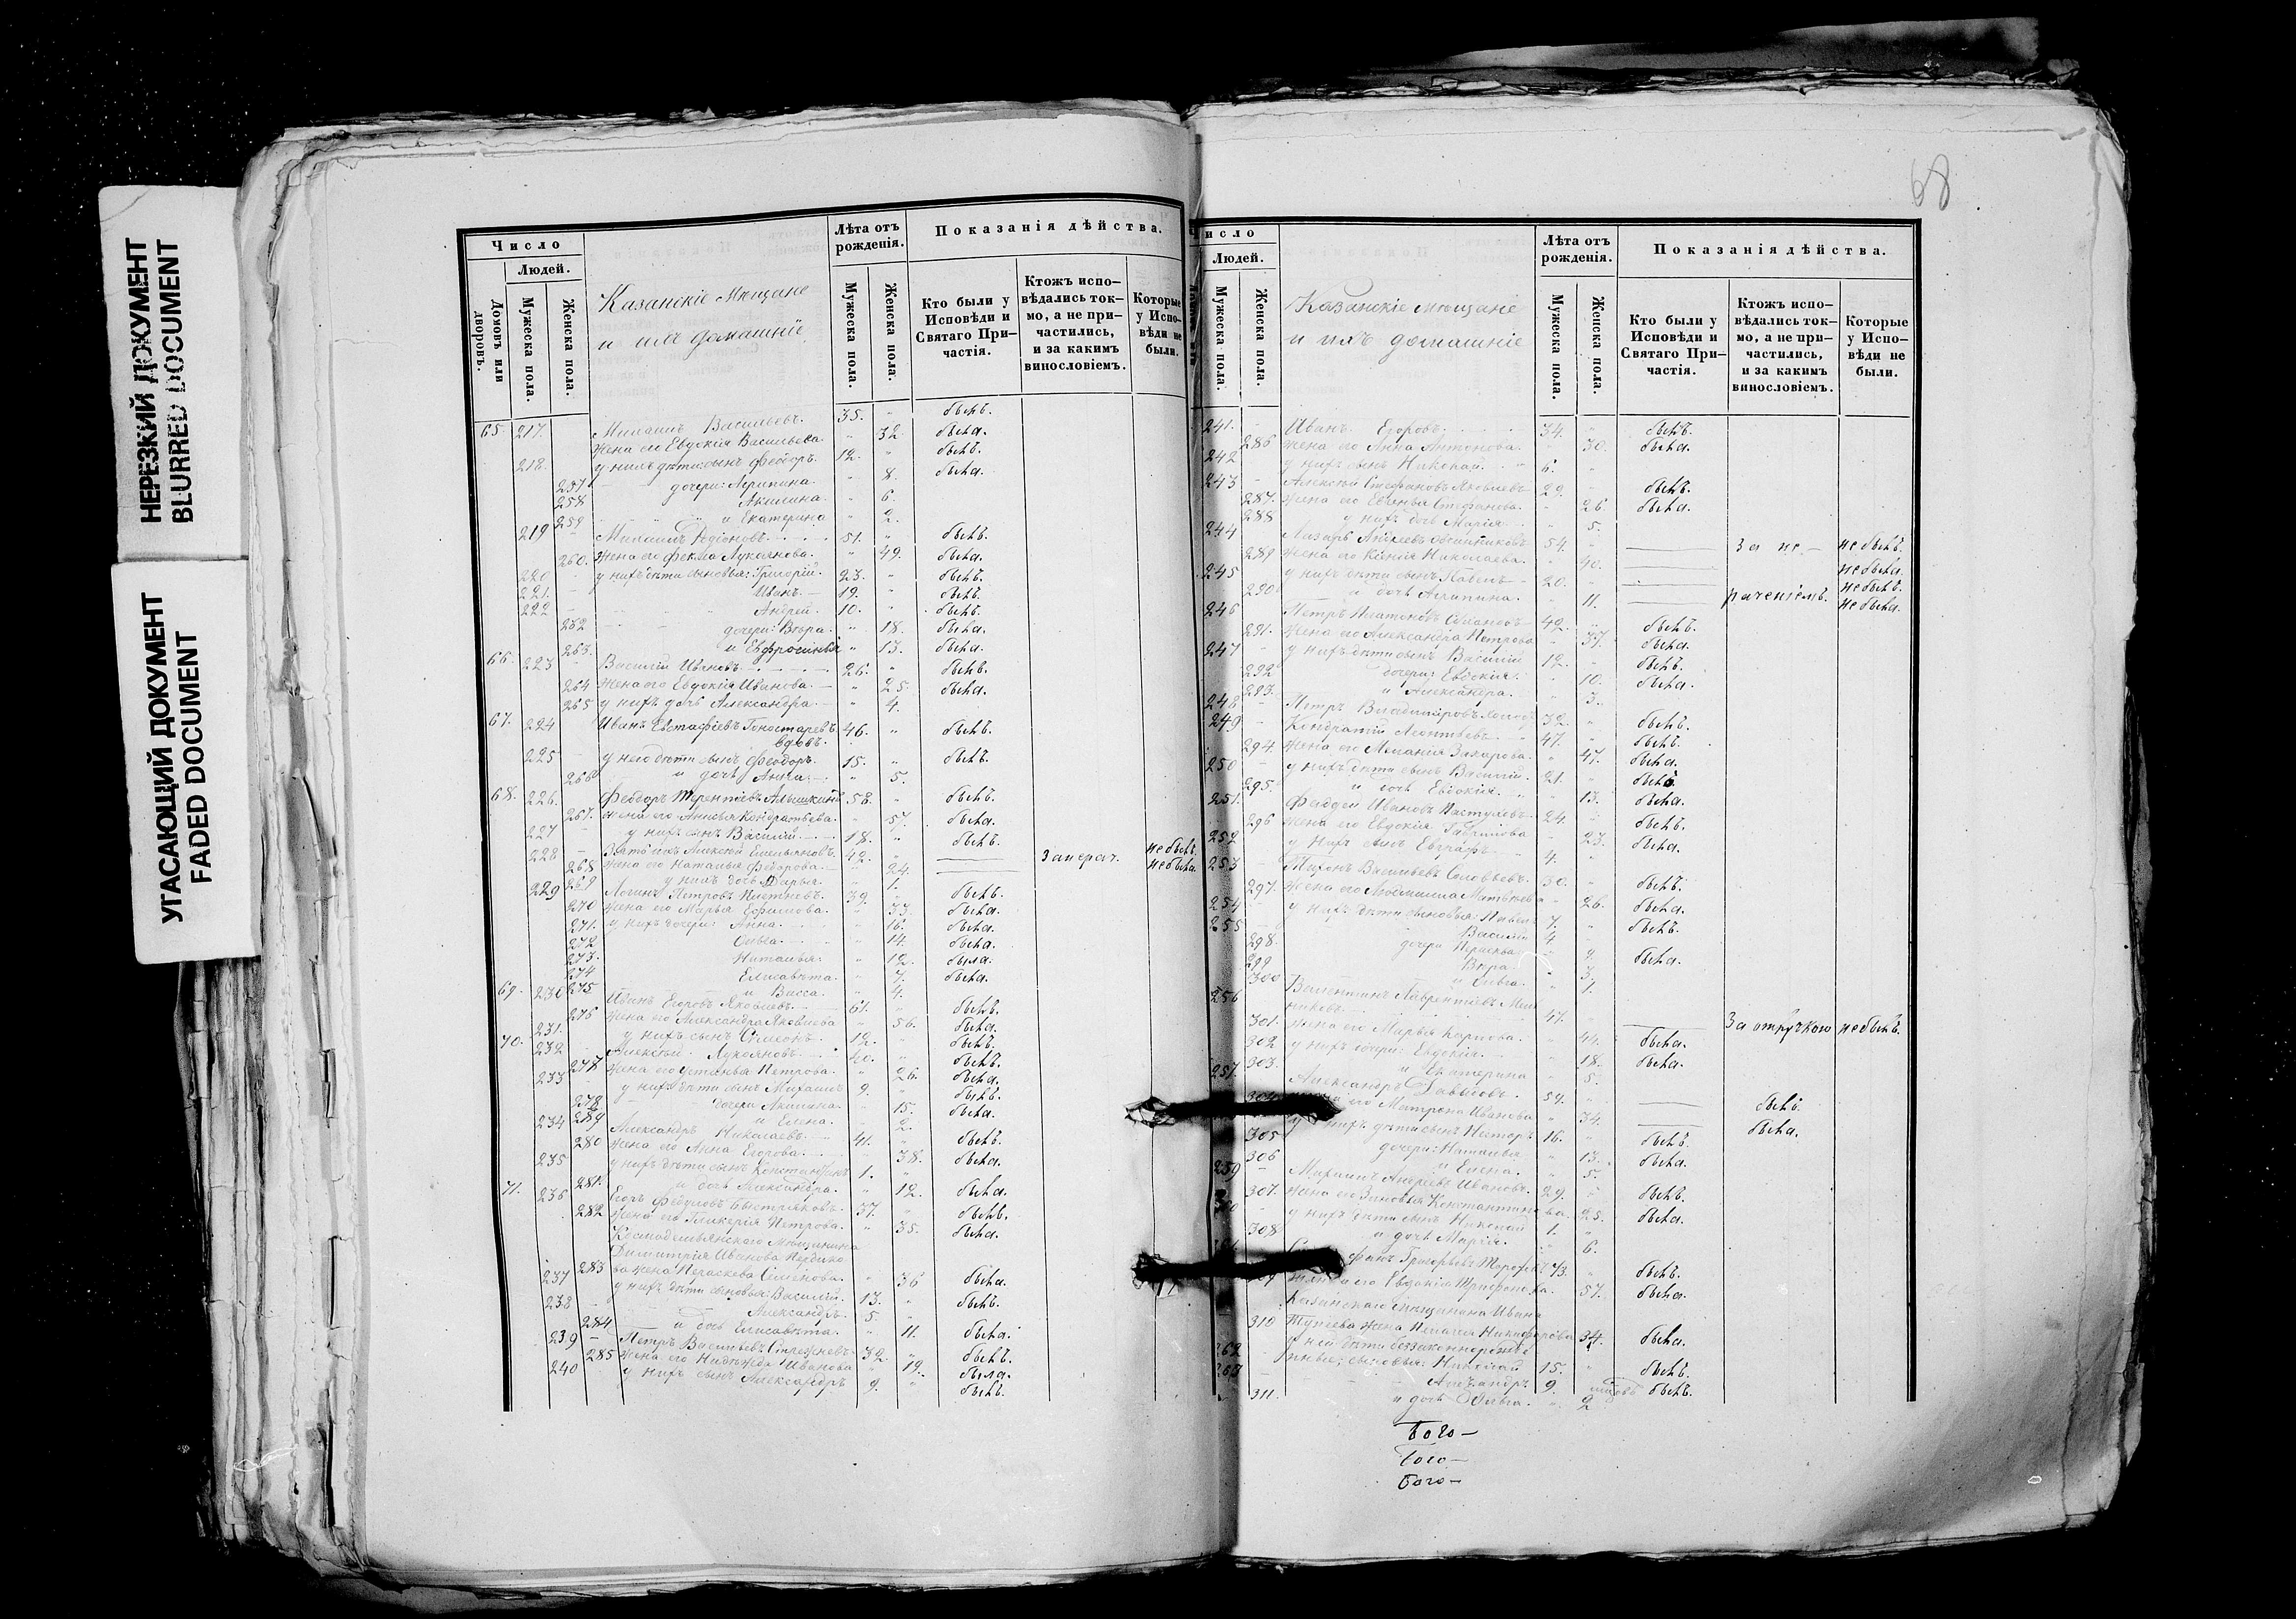 НЕРЕЗКИЙ ДОКУМЕНТ
BLURRED DOCUMENT
УГАСАЮЩИЙ ДОКУМЕНТ
FADED DOCUMENT
Число
Людей.
Домовъ или дворовъ.
Мужеска пола.
Женска пола.
Казанскіе Мѣщане
и ихъ домашніе
Лѣта отъ рожденія.
Мужеска пола.
Женска пола.
Показанія дѣйства.
Кто были у Исповѣди и Святаго Причастія.
Ктожъ исповѣдались токмо, а не причастились, и за какимъ винословіемъ.
Которые у Исповѣди не были.
65. 217. Михаилъ Васильевъ. 35. " былъ.
Жена его Евдокія Васильева. " 32. была.
218. у нихъ дѣти: сынъ Феодоръ. 12. " былъ.
257 дочери: Агрипина. " 8. была.
258 Акилина. " 6.
259 и Екатерина " 2.
219 Михаилъ Родіоновъ. 51. " былъ.
260. Жена его Фекла Лукоянова. " 49. была.
220 у нихъ дѣти сыновья: Григорій. 23. " былъ.
221. Иванъ. 19. " былъ.
222 Андрей. 10. " былъ.
262 дочери: Вѣра. " 18. была.
263. и Евфросинья " 13. была.
66. 223 Василій Ивановъ. 26. " былъ.
264 Жена его Евдокія Иванова. " 25. была.
265 у нихъ дочь Александра. " 4.
67. 224 Иванъ Евстафіевъ Гоностаревъ. 46. " былъ.
вдовъ.
225 у него дѣти сынъ Феодоръ. 15. " былъ.
266 и дочь Анна. " 5.
68. 226. Феодоръ Терентіевъ 58. " былъ.
267. Жена его Анисья Кондратьева. " 57. была.
227 у нихъ сынъ Василій. 18. " былъ.
228 Алексѣй Емельяновъ. 42. " не былъ.
268 Жена его Наталья Федорова. " 24. не была.
269 у нихъ дочь Дарья. " 1.
229 Логинъ Петровъ 39. " былъ.
270 Жена его Марья Ефимова. " 33. была.
271. у нихъ дочери: Анна. " 16. была.
272 Ольга. " 14. была.
273. Наталья. " 12. была.
274 Елисавѣта. " 7. была.
275 и Васса. " 4.
69. 230 Иванъ Егоровъ Яковлевъ. 61. " былъ.
276 Жена его Александра Яковлева " 56. была.
231. у нихъ сынъ Симеонъ. 12. " былъ.
70. 232 Алексѣй Лукояновъ. 40. " былъ.
277 Жена его Устинья Петрова. " 26. была.
233 у нихъ дѣти сынъ Михаилъ 9. " былъ.
278 дочери Акилина. " 15. была.
279 и Елена. " 2.
234 Александръ Николаевъ. 41. " былъ.
280 Жена его Анна Егорова. " 38. была.
235 у нихъ дѣти сынъ Константинъ 1. "
281. и дочь Александра. " 12. была.
71. 236 Егоръ Федуловъ Быстряковъ. 37. " былъ.
282 Жена его Гликерія Петрова. " 35. была.
Космодемьянскаго Мѣщанина
Димитрія Иванова
283 жена Параскева Симеонова. " 36 была.
237 у нихъ дѣти сыновья: Василій. 13. " былъ.
238 Александръ. 5. "
284 и дочь Елисавѣта. " 11. была.
239 Петръ Васильевъ Стрежневъ. 32. " былъ.
285 Жена его Надежда Иванова " 19. была.
240 у нихъ сынъ Александръ 9. " былъ.
68
Число
Людей.
Мужеска пола.
Женска пола.
Казанскіе мѣщане
и ихъ домашніе
Лѣта отъ рожденія.
Мужеска пола.
Женска пола.
Показанія дѣйства.
Кто были у Исповѣди и Святаго Причастія.
Ктожъ исповѣдались токмо, а не причастились, и за какимъ винословіемъ.
Которые у Исповѣди не были.
241. Иванъ Егоровъ. 34. " былъ.
286 Жена его Анна Антонова. " 30. была.
242 у нихъ сынъ Николай. 6. "
243 Алексѣй Стефановъ Яковлевъ 29. былъ.
287. Жена его Евгенья Стефанова. " 26 была.
288 у нихъ дочь Марія. " 5.
244 Лазарь Андреевъ Овсянниковъ 54. За не- не былъ.
289 Жена его Ксенія Николаева. " 40. не была.
245 у нихъ дѣти сынъ Павелъ 20. раченіемъ. не былъ.
290 и дочь Агрипина. " 11. не была.
246 Петръ Платоновъ 42. " былъ.
291. Жена его Александра Петрова " 37. была.
247 у нихъ дѣти сынъ Василій 12. былъ.
292 дочери: Евдокія. " 10. была.
293. и Александра. " 3.
248 Петръ Владиміровъ 32. " былъ.
249 Кондратій Леонтьевъ 47. былъ.
294. Жена его Меланія Захарова. " 47. была.
250 у нихъ дѣти сынъ Василій. 21. " былъ.
295. и дочь Евдокія. " 13. была.
251. Фаддей Ивановъ Пастуховъ. 24. " былъ.
296 Жена его Евдокія Гаврилова " 23. была.
252 у нихъ сынъ Евграфъ 4. "
253 Тихонъ Васильевъ Соловьевъ. 30. " былъ.
297. Жена его Матвѣева " 26. была.
254 у нихъ дѣти сыновья: Павелъ 7. " былъ.
255 Василій 4. "
298. дочери Параскева " 9. была.
299 Вѣра. " 3.
300 и Ольга. " 1.
256 Валентинъ Лаврентіевъ
никовъ. 47. " За отлучкою не былъ.
301. Жена его Марья Карпова. " 44. была.
302 у нихъ дочери: Евдокія. " 18. была.
303. и Екатерина " 5.
257. Александръ Давыдовъ. 59. " былъ.
304 Жена его Матрона Иванова " 34. была.
у нихъ дѣти сынъ Несторъ 16. " былъ.
305 дочери: Наталья " 13. была.
306 и Елена. " 5.
259 Михаилъ Андреевъ Ивановъ. 29. " былъ.
307. Жена его Зиновья Константинова. " 25. была.
у нихъ дѣти сынъ Николай 1. "
308 и дочь Марія. " 6.
Григорьевъ 73. былъ.
его Евдокія Трифонова. " 57. была.
Казанскаго мѣщанина Ивана
310 Тупеева жена Пелагея Никифорова 34. была.
262 у ней дѣти беззаконнорожден
263 ные: сыновья: Николай 15. " былъ.
Александръ 9. былъ.
311. и дочь Ольга. " 2
Бого-
Бого-
Бого-